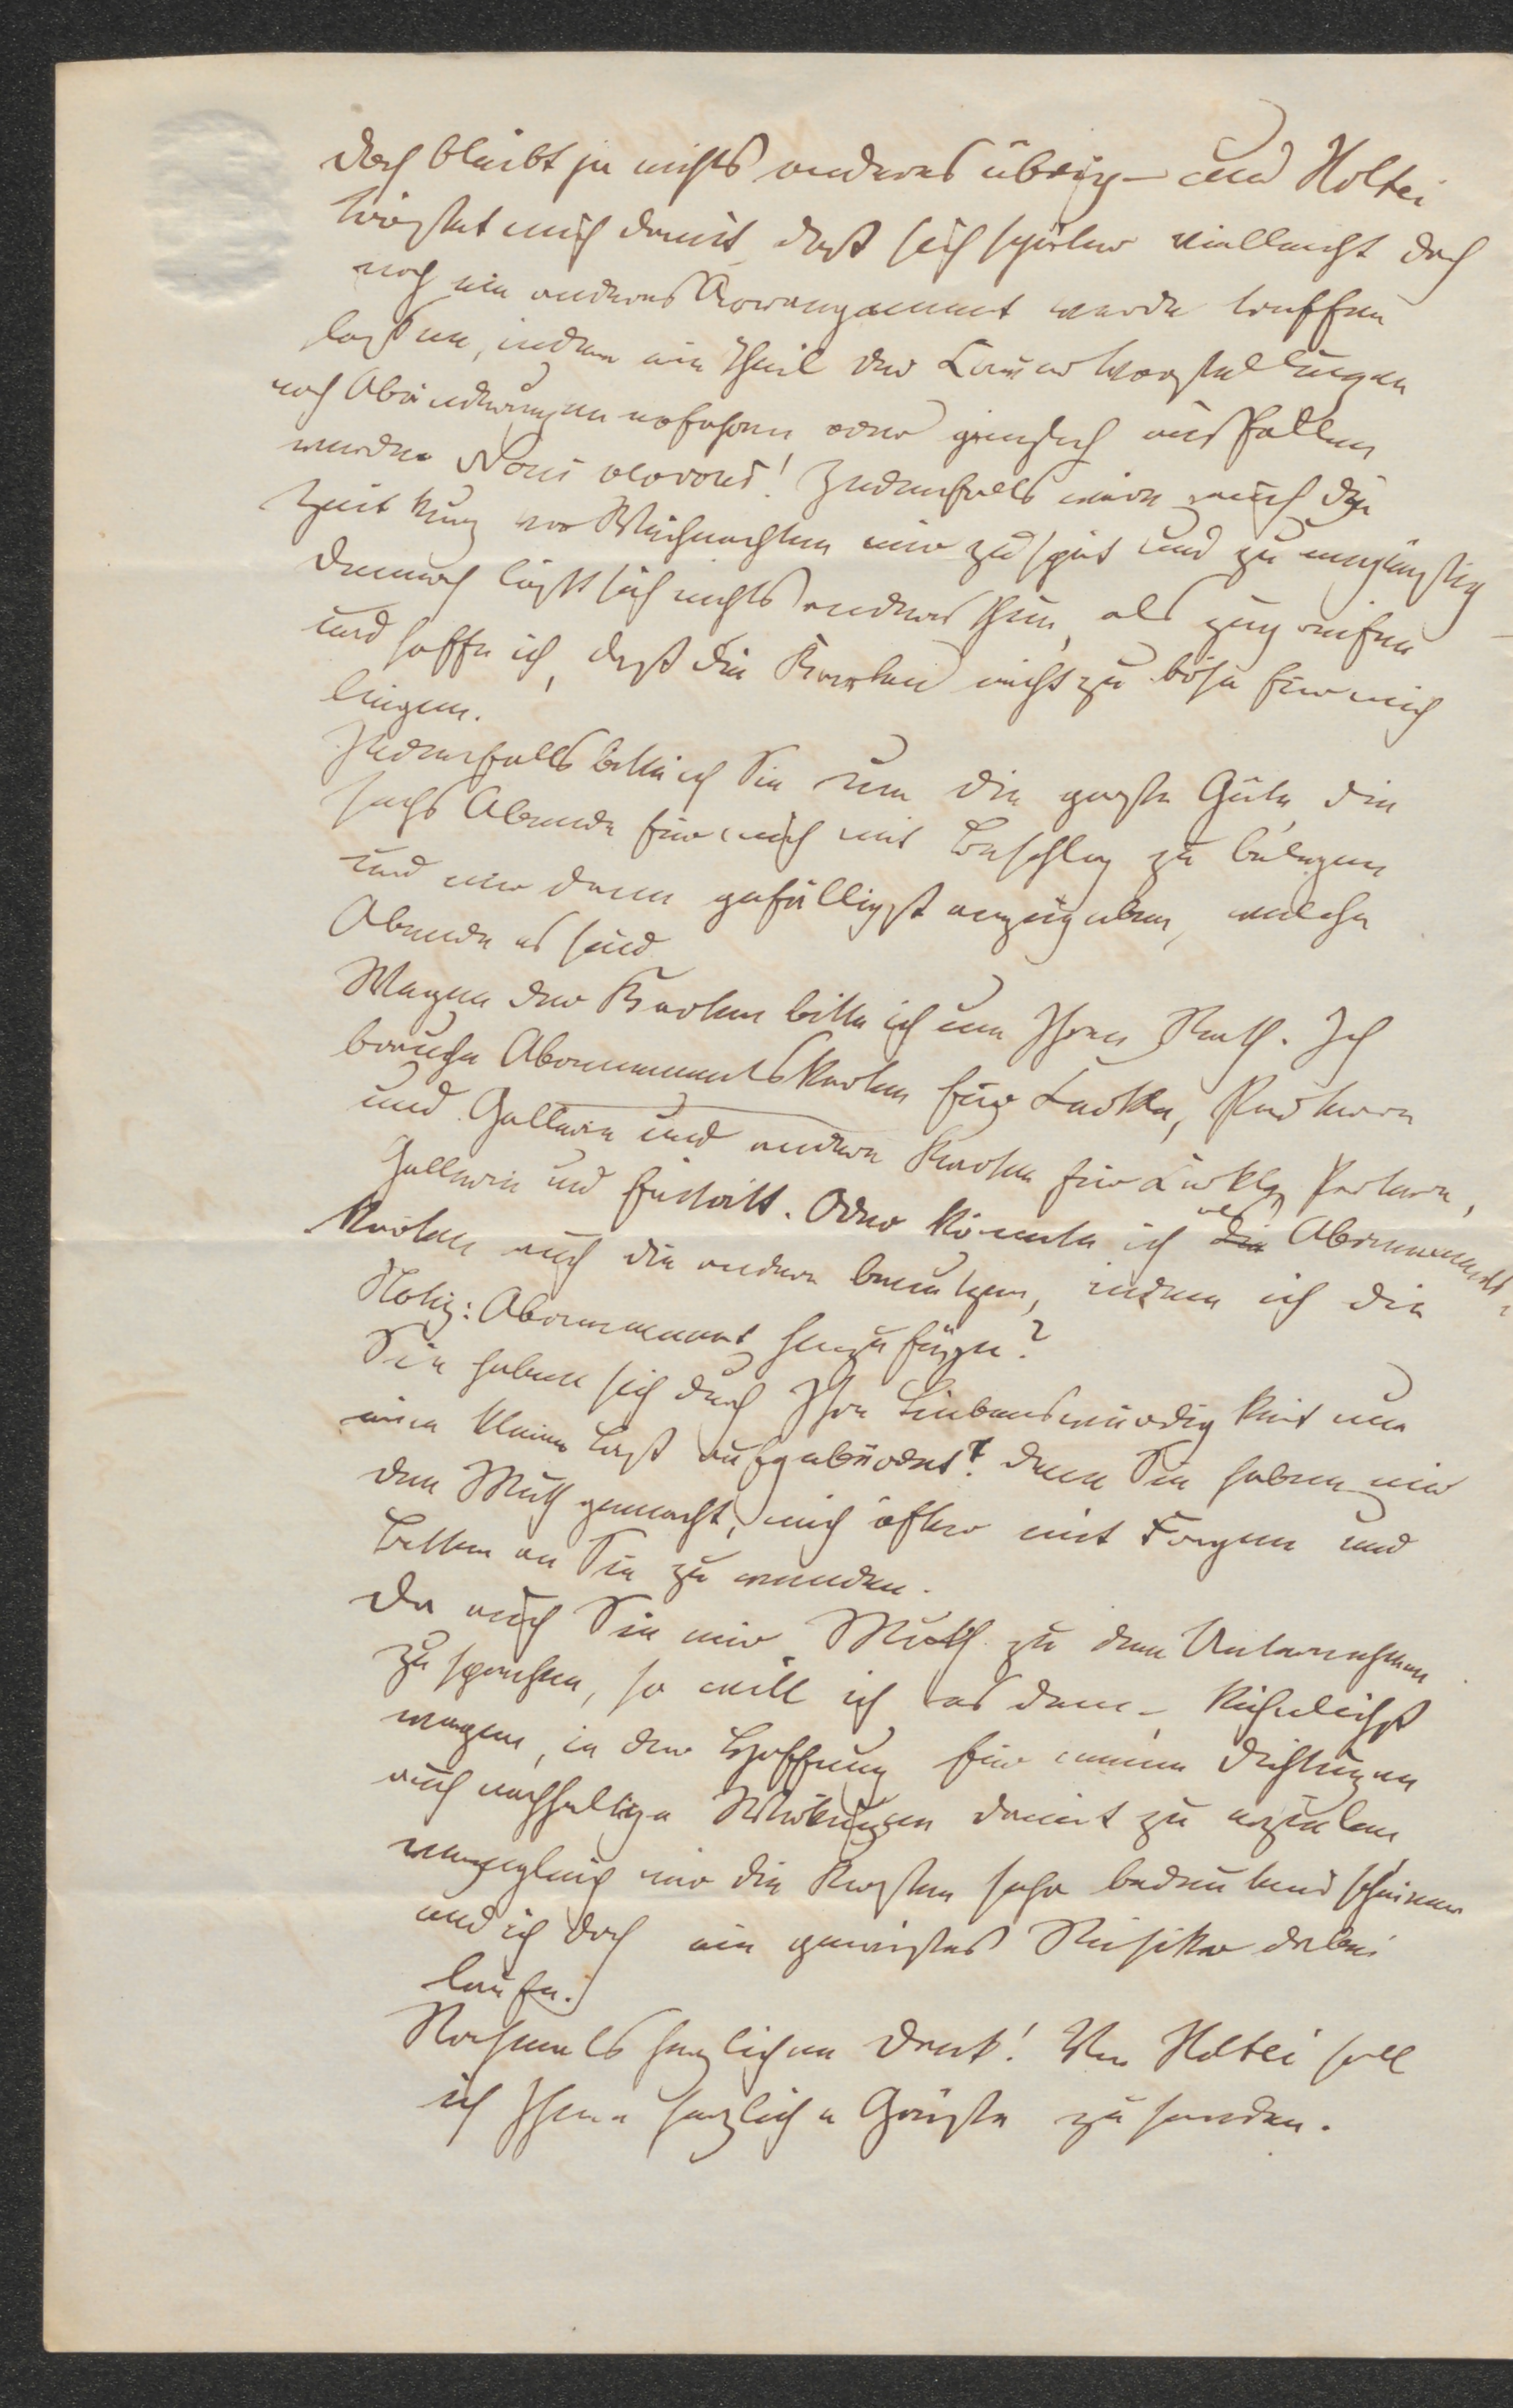 doch bleibt ja nichts anderes übrig – und Holtei
tröstet mich damit, daß sich später vielleicht doch
noch ein anderes Arrangement werde treffen
lassen, indem ein Theil der Vorstellungen
noch Abänderungen erfahren oder gänzlich ausfallen
werden. Nous verrons! Jedenfalls wäre auch die
Zeit kurz vor Weihnachten mir zu spät und zu ungünstig
demnach läßt sich nichts anderes thun, als zugreifen
und hoffe ich, daß die Karten nicht zu böse für mich
liegen.
Jedenfalls bitte ich Sie um die große Güte, die
sechs Abende für mich mit Beschlag zu belegen
und mir dann gefälligst anzugeben, welche
Abende es sind.
Wegen der Karten bitte ich um Ihren Rath. Ich
brauche Abonnementskarten für Parterre
und Gallerie und andere Karten für Parterre,
Gallerie und . Oder könnte ich die Abonnements-
karten auch die andern benutzen, indem ich die
Notiz: Abonnement hinzufüge?
Sie haben sich durch Ihre Liebenswürdigkeit nun
eine kleine Last aufgebürdet! denn Sie haben mir
den Muth gemacht, mich öfter mit Fragen und
Bitten an Sie zu wenden.
Da auch Sie mir Muth zu dem Unternehmen
zusprechen, so will ich es denn – kühnlichst
wagen, in der Hoffnung für meine Dichtungen
auch nachhaltige Wirkungen damit zu erzielen,
wenngleich mir die Kosten sehr bedeutend scheinen
und ich doch ein gewisses Risiko dabei
laufe.
Nochmals herzlichen Dank! Von Holtei soll
ich Ihnen herzliche Grüße zusenden.